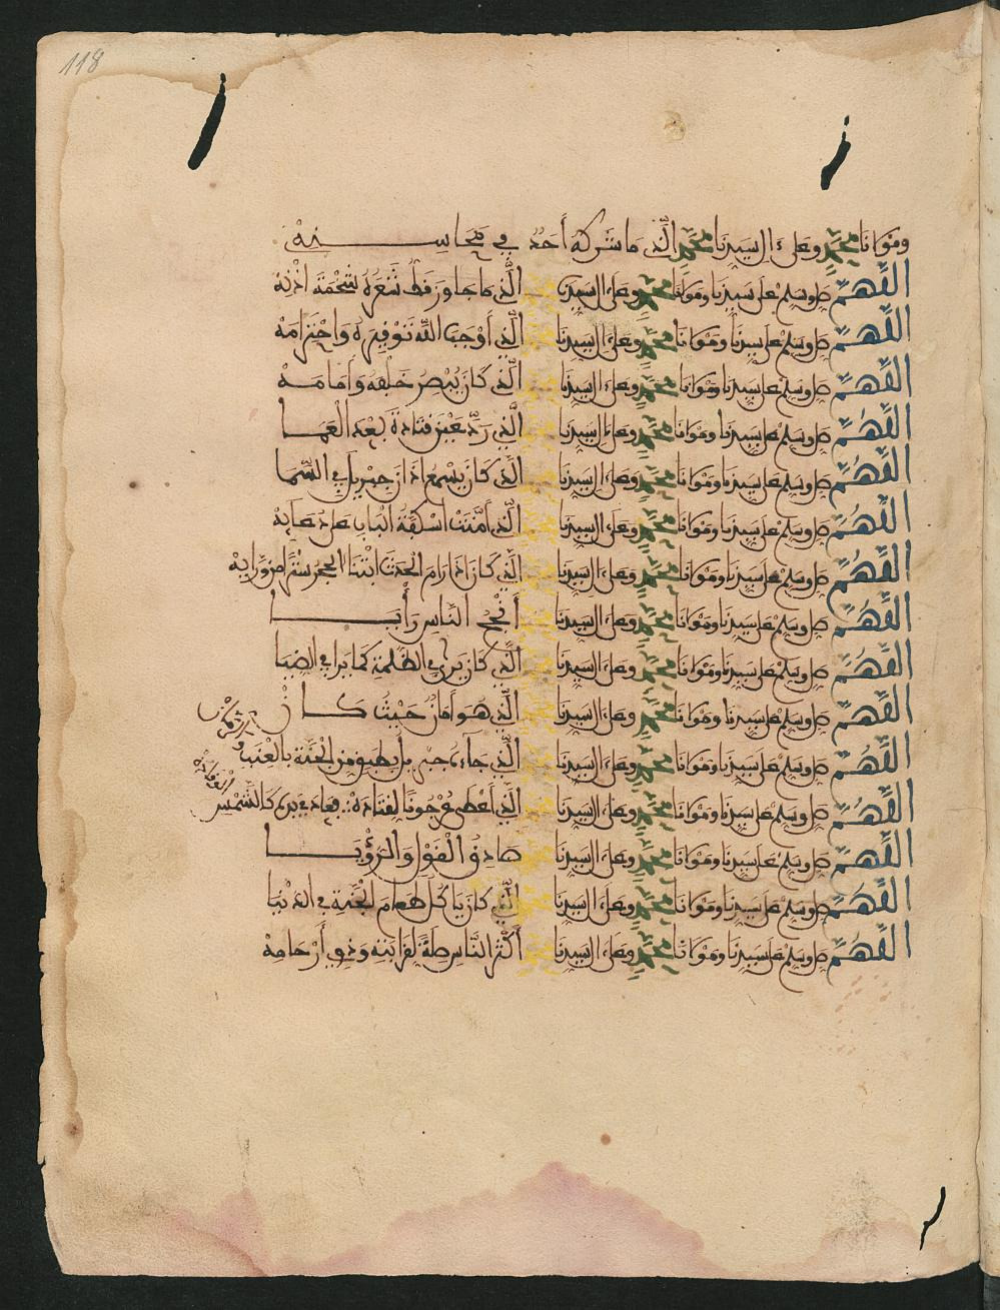 118
ومولانا محمد وعلى ءال سيدنا محمد الذي ما شركه أحد في محاسنه
اللهم صل وسلم على سيدنا ومولانا محمد وعلى ءال سيدنا محمد الذي ما جاوز قط شعره شحمة اذنه
اللهم صل وسلم على سيدنا ومولانا محمد وعلى ءال سيدنا محمد الذي أوجب الله توقيره واحترامه
اللهم صل وسلم على سيدنا ومولانا محمد وعلى ءال سيدنا محمد الذي كان يبصر خلفه وأمامه
اللهم صل وسلم على سيدنا ومولانا محمد وعلى ءال سيدنا محمد الذي رد عين قتادة بعد العما
اللهم صل وسلم على سيدنا ومولانا محمد وعلى ءال سيدنا محمد الذي كان يسمع اذان جبريل في السما
اللهم صل وسلم على سيدنا ومولانا محمد وعلى ءال سيدنا محمد الذي أمنت اسكفة الباب على دعائه
اللهم صل وسلم على سيدنا ومولانا محمد وعلى ءال سيدنا محمد الذي كان اذا رام الحدث اتتنا الحجر سترا من ورائه
اللهم صل وسلم على سيدنا ومولانا محمد وعلى ءال سيدنا محمد أنجح الناس رأيا
اللهم صل وسلم على سيدنا ومولانا محمد وعلى ءال سيدنا محمد الذي كان يرى في الظلمة كما يرا في الضيا
اللهم صل وسلم على سيدنا ومولانا محمد وعلى ءال سيدنا محمد الذي هو أمان حيث كان
اللهم صل وسلم على سيدنا ومولانا محمد وعلى ءال سيدنا محمد الذي جاءه جبريل بطبق من الجنة بالعنب والرمان
اللهم صل وسلم على سيدنا ومولانا محمد وعلى ءال سيدنا محمد الذي أعطى عرجونا لقتادة فعاد في يده كالشمس
اللهم صل وسلم على سيدنا ومولانا محمد وعلى ءال سيدنا محمد صادق القول والرؤيا
اللهم صل وسلم على سيدنا ومولانا محمد وعلى ءال سيدنا محمد الذي كان ياكل طعام الجنة في الدنيا
اللهم صل وسلم على سيدنا ومولانا محمد وعلى ءال سيدنا محمد أكثر الناس صلة لقرابته وذوي أرحامه